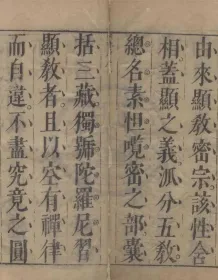 由來顯教密宗該性含
相蓋顯之義派分五教
總名素怛囕密之部囊
括三藏獨號陀羅尼習
顯教者且以空有禪律
而自違不盡究竟之圓